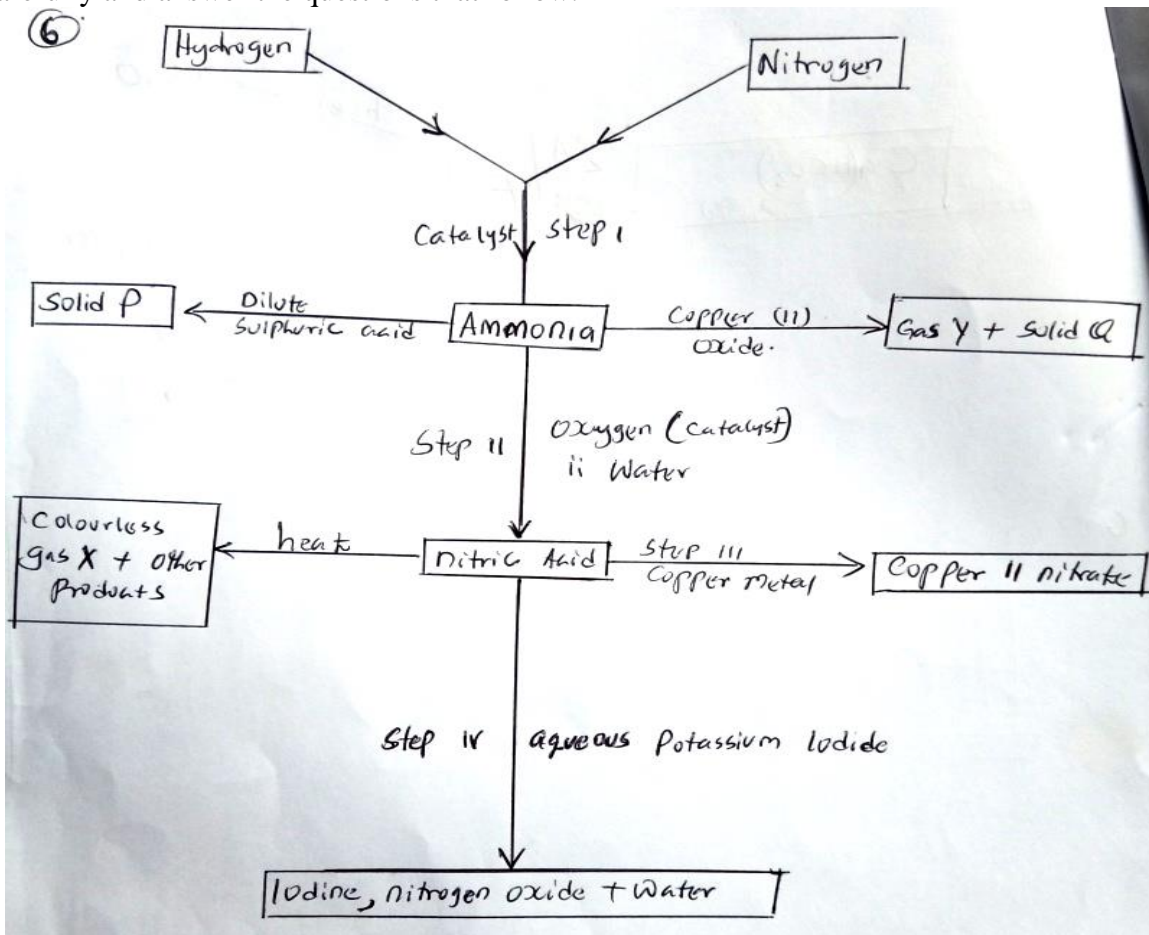 6
Hydrogen
Nitrogen
Catalyst
Step 1
Solid P
Dilute
Sulphuric acid
Ammonia
Copper (11)
Oxide.
Gas Y + Solid Q
Step 11
Oxygen (Catalyst)
ii Water
Colourless
gas X + Other
Products
heat
Nitric Acid
Step 111
Copper Metal
Copper 11 nitrate
Step 1V
aqueous Potassium Iodide
Iodine, nitrogen oxide + Water